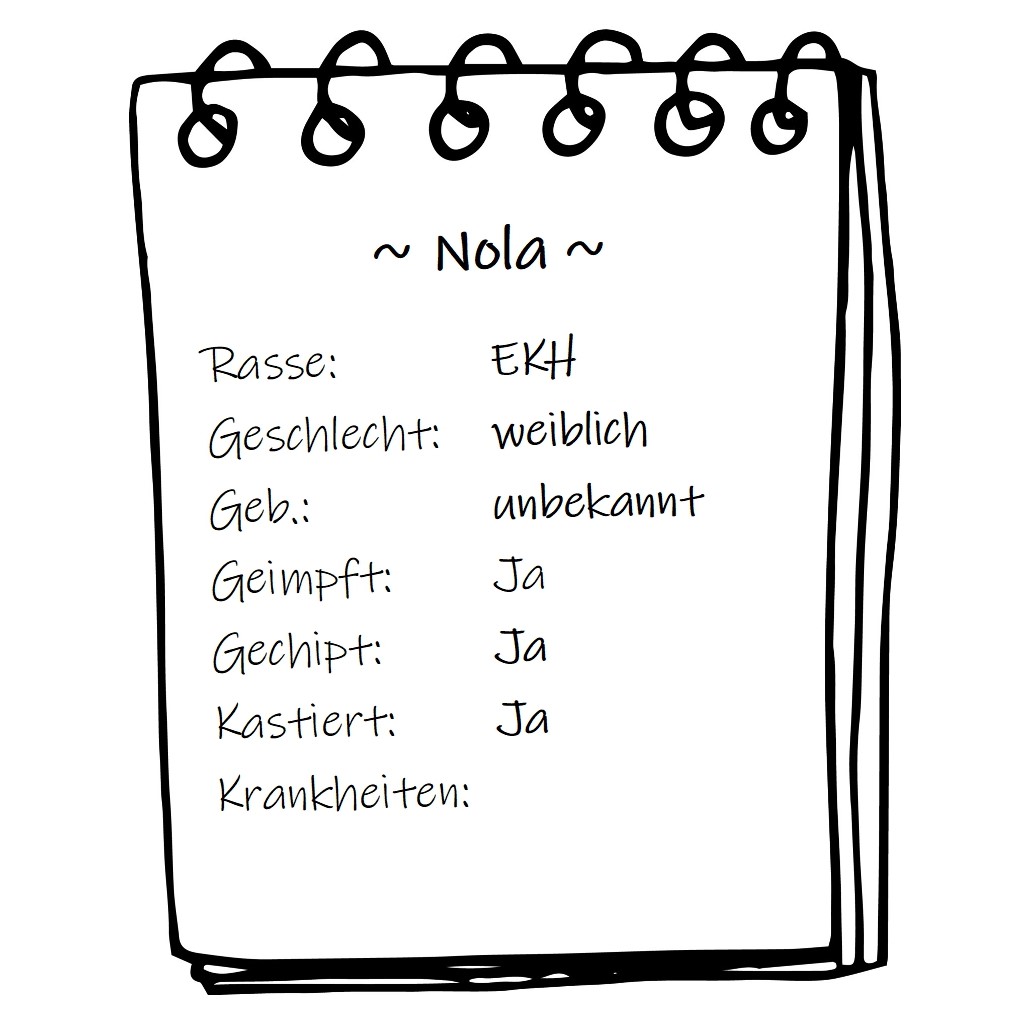 ~ Nola ~
Rasse: EKH
Geschlecht: weiblich
Geb.: unbekannt
Geimpft: Ja
Gechipt: Ja
Kastiert: Ja
Krankheiten: